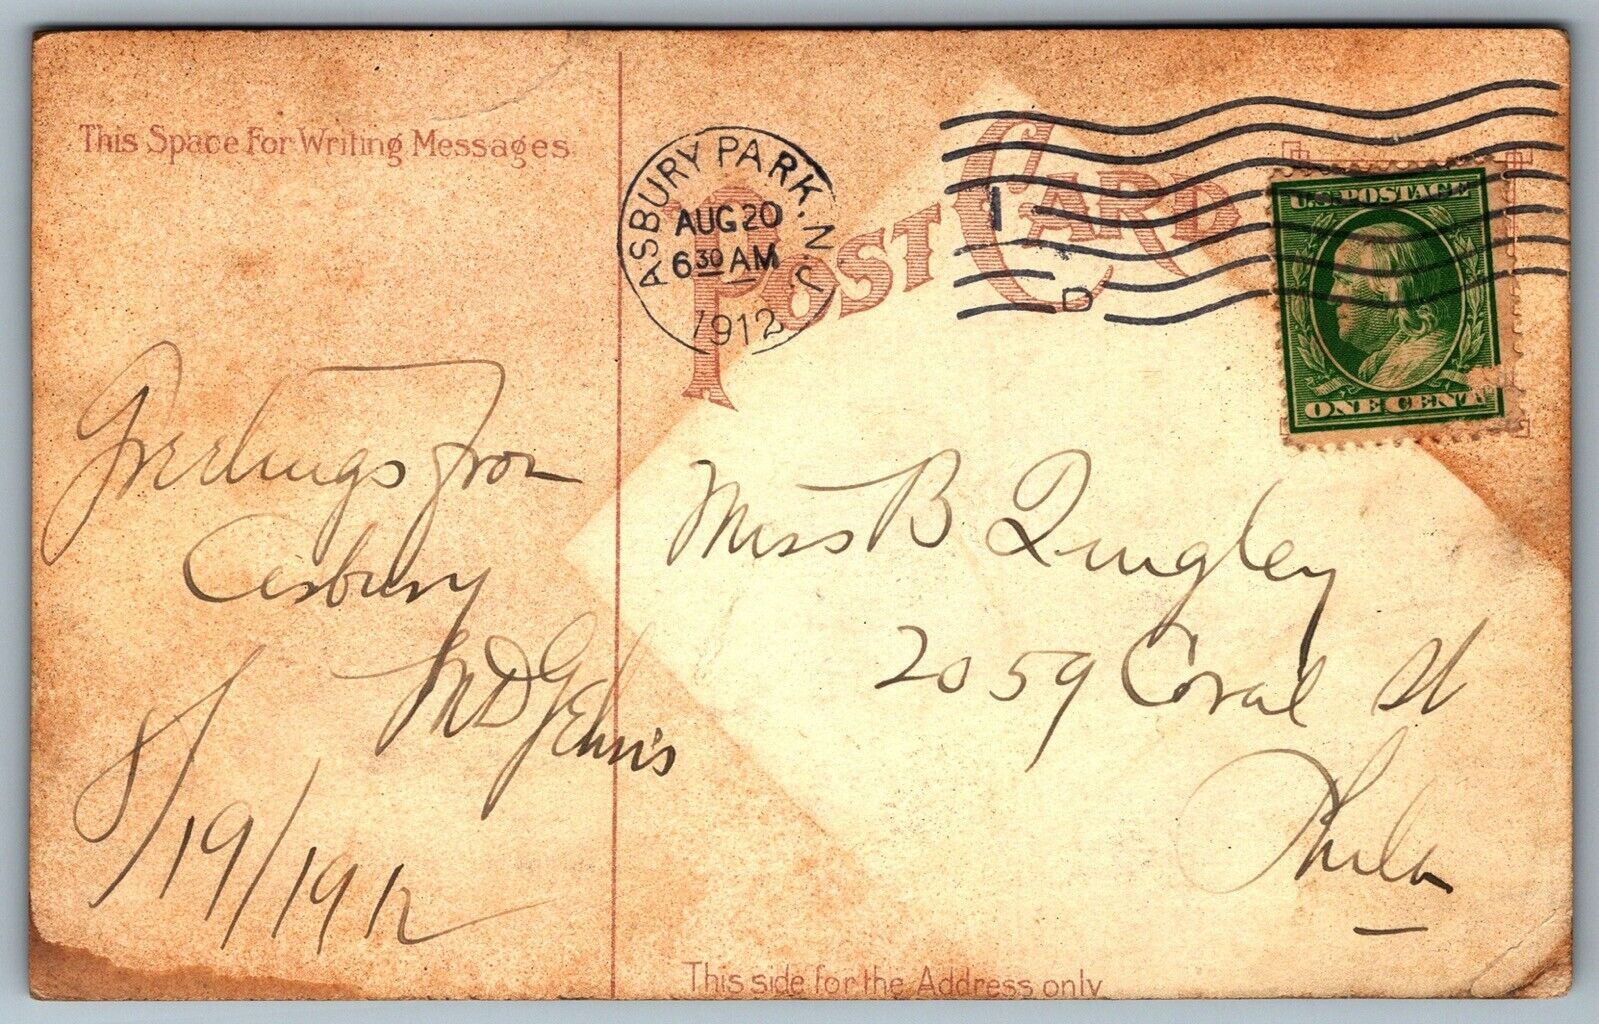 This Space For Writing Messages
ASBURY PARK. N.J.
AUG 20
6 30 AM
1912
POST CARD
1
D
U.S. POSTAGE
ONE CENT
Greetings from
Asbury
8/19/1912
Miss B Quigley
2059 Coral St
Phila
This side for the Address only